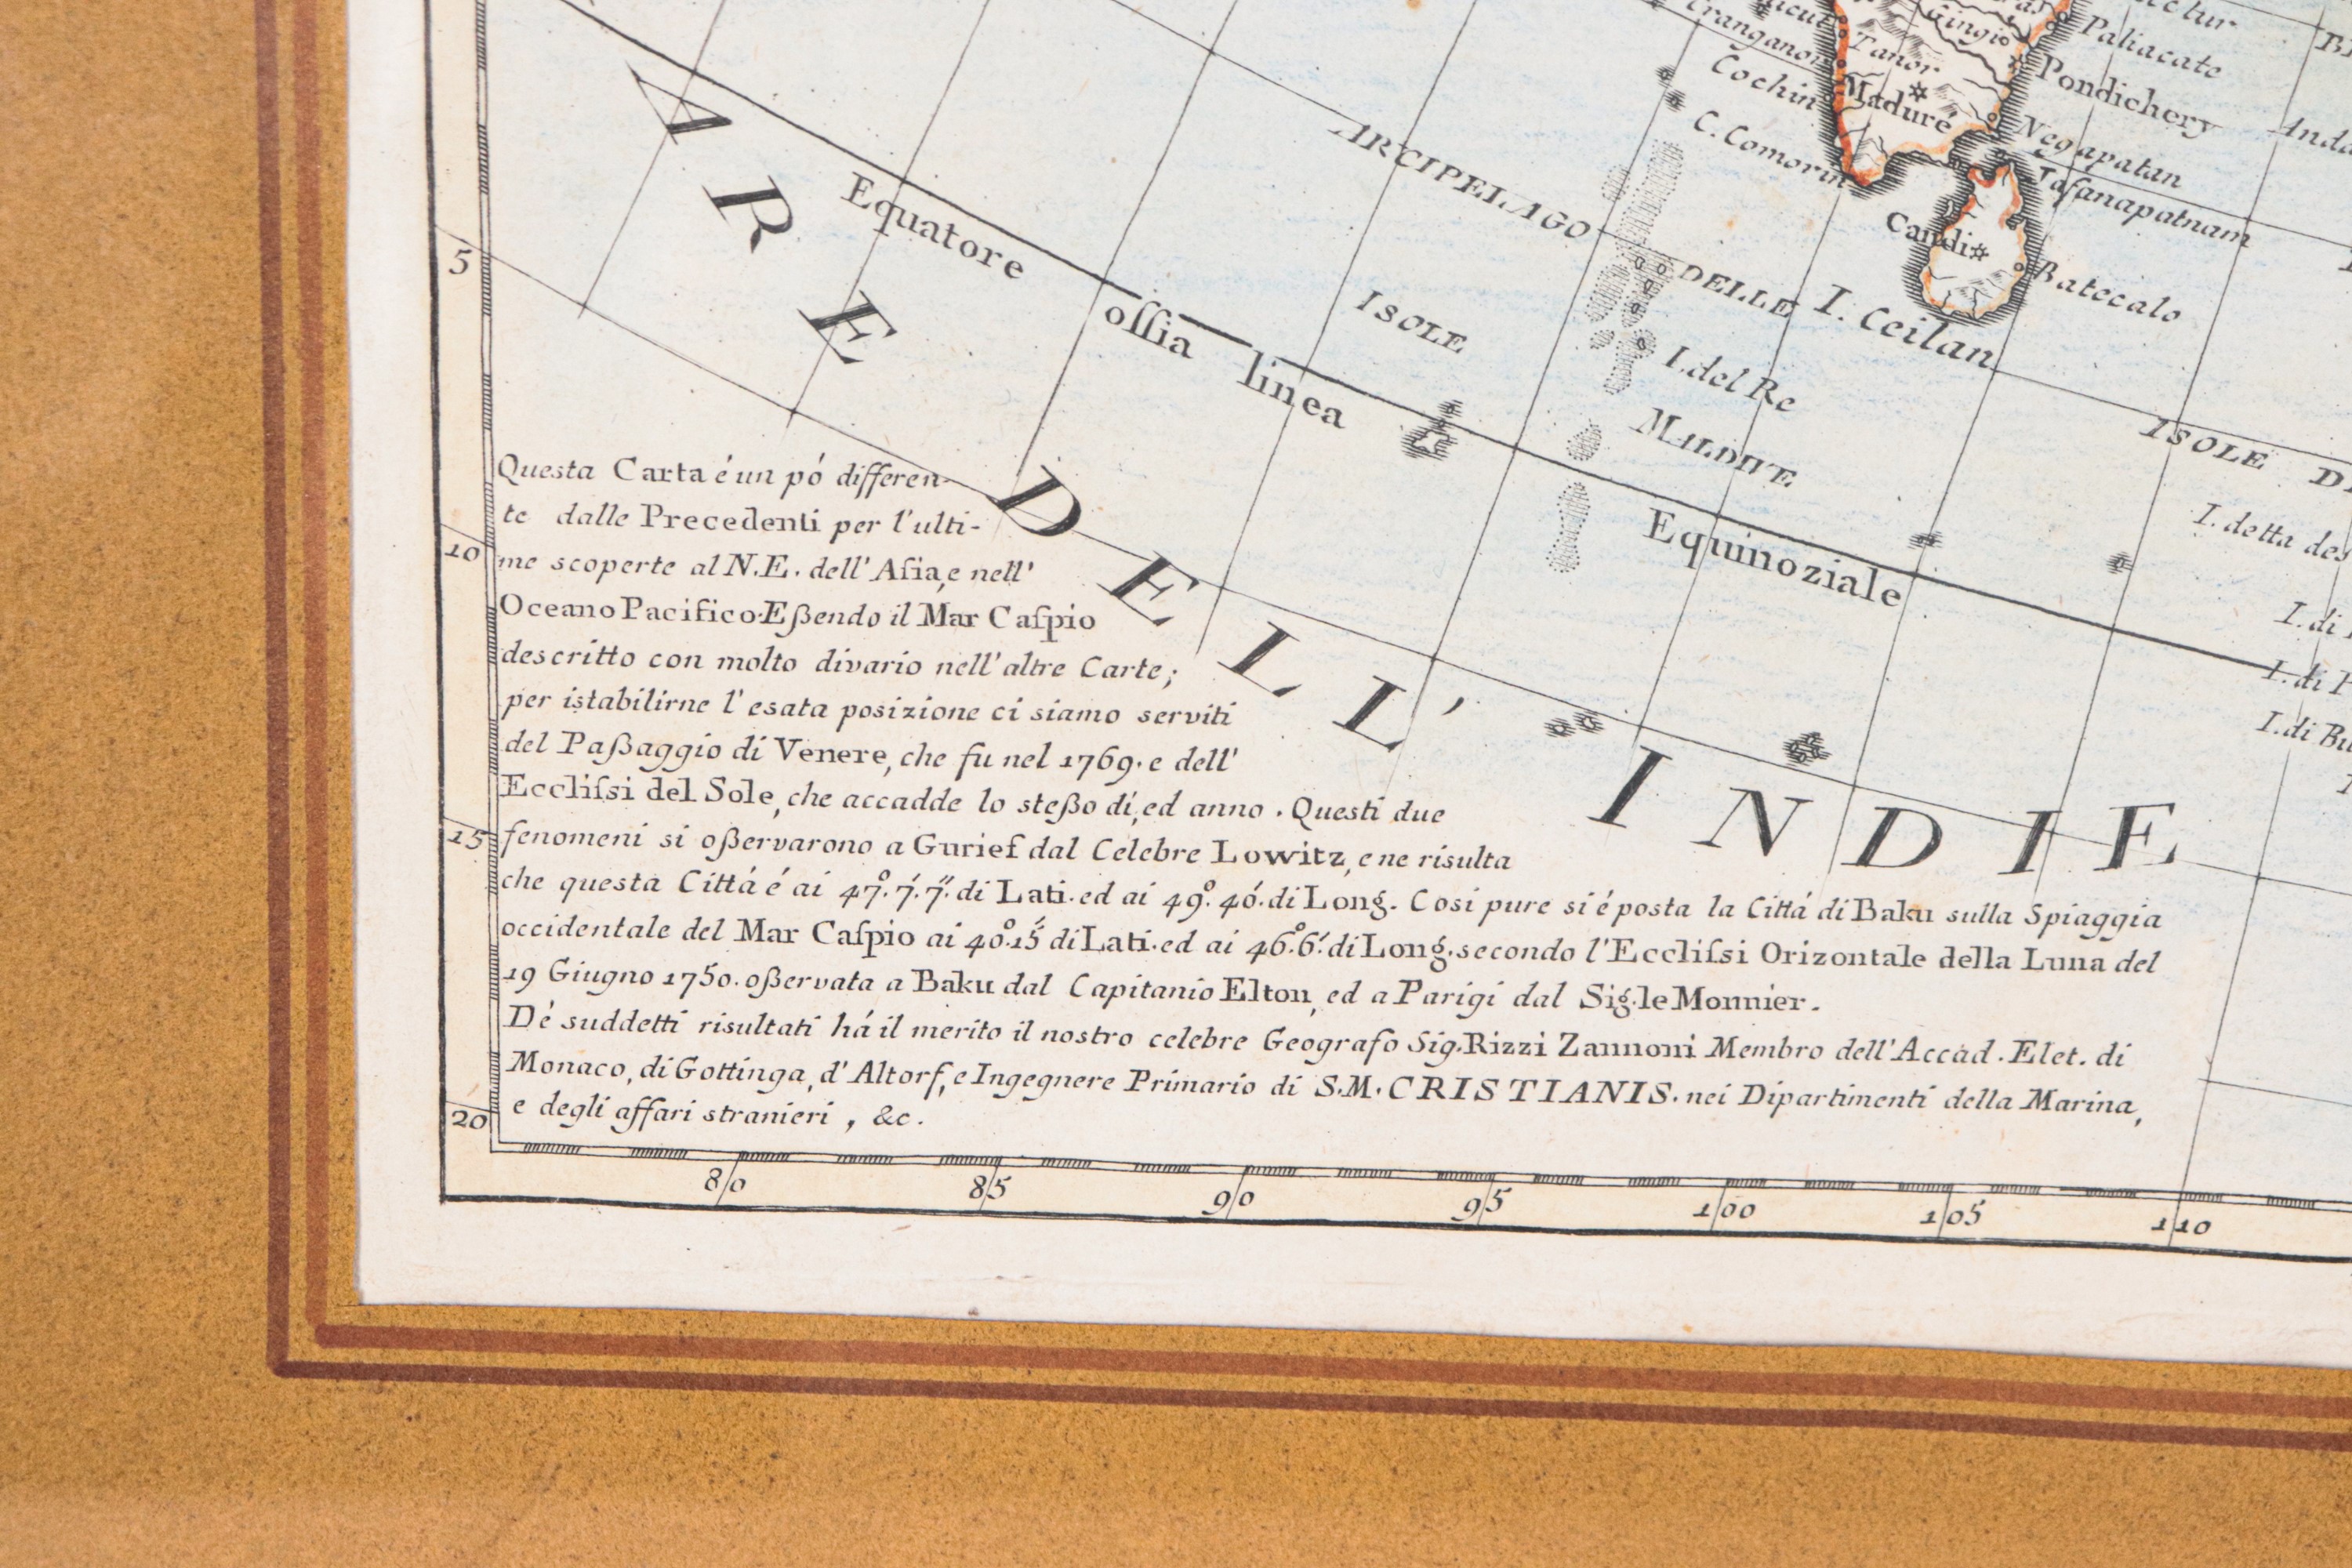 ARE DELL' INDIE
Equatore ossia linea Equinoziale
ARCIPELAGO DELLE
ISOLE
MALDIVE
I. del Re
Cranganor
Tanor
Gingi
Paliacate
Pondichery
Cochin
Maduré
C. Comorin
Negapatan
Jafanapatnam
Candi
Batecalo
I. Ceilan
ISOLE
I. detta des
I. di
I. di
I. di Bu
5
10
15
20
Questa Carta é un pó differen-
te dalle Precedenti per l'ulti-
me scoperte al N.E. dell' Aſia, e nell'
Oceano Pacifico. Eßendo il Mar Caſpio
descritto con molto divario nell' altre Carte;
per istabilirne l' esata posizione ci siamo serviti
del Paßaggio di Venere, che fu nel 1769. e dell'
Eccliſsi del Sole, che accadde lo steßo dí, ed anno. Questi due
fenomeni si oßervarono a Gurief dal Celebre Lowitz, e ne risulta
che questa Cittá é ai 47.º 7.' 7.'' di Lati. ed ai 49.º 40.' di Long. Cosi pure si é posta la Cittá di Baku sulla Spiaggia
occidentale del Mar Caſpio ai 40.º 15' di Lati. ed ai 46.º 6.' di Long. secondo l'Eccliſsi Orizontale della Luna del
19 Giugno 1750. oßervata a Baku dal Capitanio Elton, ed a Parigi dal Sig. le Monnier.
Dé suddetti risultati há il merito il nostro celebre Geografo Sig. Rizzi Zannoni Membro dell' Accad. Elet. di
Monaco, di Gottinga, d' Altorf, e Ingegnere Primario di S.M. CRISTIANIS. nei Dipartimenti della Marina,
e degli affari stranieri, &c.
80 85 90 95 100 105 110